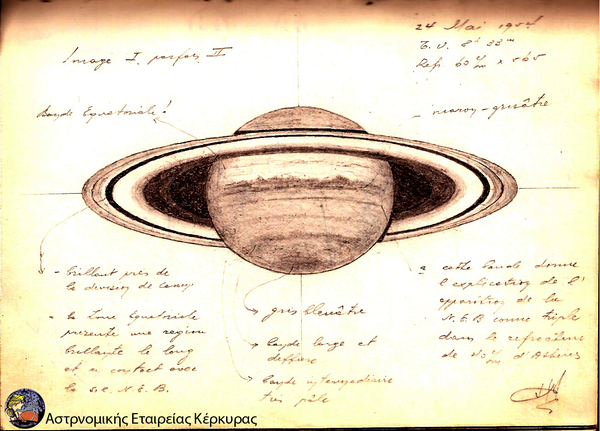 24 Mai 1954
T.U. 8h 33m
Image I parfois II
Bande Equatoriale!
- maron-grisâtre
- brillant près de
la division de
- la Zone Equatoriale
présente une region
brillante le long
et en contact avec
la N.E.B.
gris bleuâtre
bande large et
bande intermédiaire
très pâle
cette bande donne
l'explication de l'
apparition de la
N.E.B comme triple
dans le
de d'Athènes
Αστρνομικής Εταιρείας Κέρκυρας